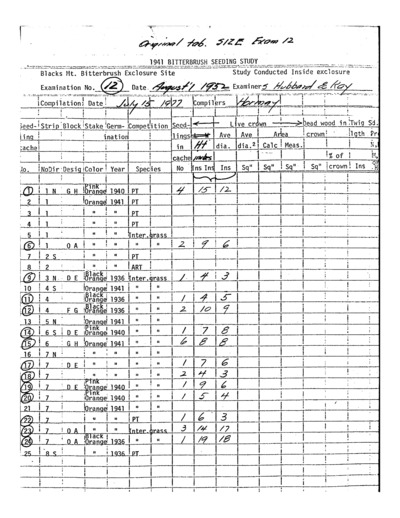 Original tab. SIZE Exam 12
1941 BITTERBRUSH SEEDING STUDY
Blacks Mt. Bitterbrush Exclosure Site Study Conducted Inside exclosure
Examination No. (12) Date August 1952 Examiners Hubbard & Kay
Compilation Date July 15 1977 Compilers Hormay
Seed- Strip Block Stake Germ- Competition Seed- Live crown Dead wood in Twig Sd.
ling ination lings Ht Ave Ave Area crown lgth Pr
cache in dia. dia.² Calc Meas.
cache % of
No. No Dir Desig Color Year Species No Ins Ins Sq" Sq" Sq" Sq" crown Ins
1 1 N G H Pink Orange 1940 PT 4 15 12
2 1 Orange 1941 PT
3 1 " " PT
4 1 " " PT
5 1 " " Inter.grass
6 1 O A " " " " 2 9 6
7 2 S " " PT
8 2 " " ART
9 3 N D E Black Orange 1936 Inter.grass 1 4 3
10 4 S Orange 1941 " "
11 4 Black Orange 1936 " " 1 4 5
12 4 F G Black Orange 1936 " " 2 10 9
13 5 N Orange 1941 " "
14 6 S D E Pink Orange 1940 " " 1 7 8
15 6 G H Orange 1941 " " 6 8 8
16 7 N " " " "
17 7 D E " " " " 1 7 6
18 7 " " " " 2 4 3
19 7 D E Pink Orange 1940 " " 1 9 6
20 7 Pink Orange 1940 " " 1 5 4
21 7 Orange 1941 " "
22 7 " " PT 1 6 3
23 7 O A " " Inter.grass 3 14 17
24 7 O A Black Orange 1936 " " 1 19 18
25 8 S " 1936 PT